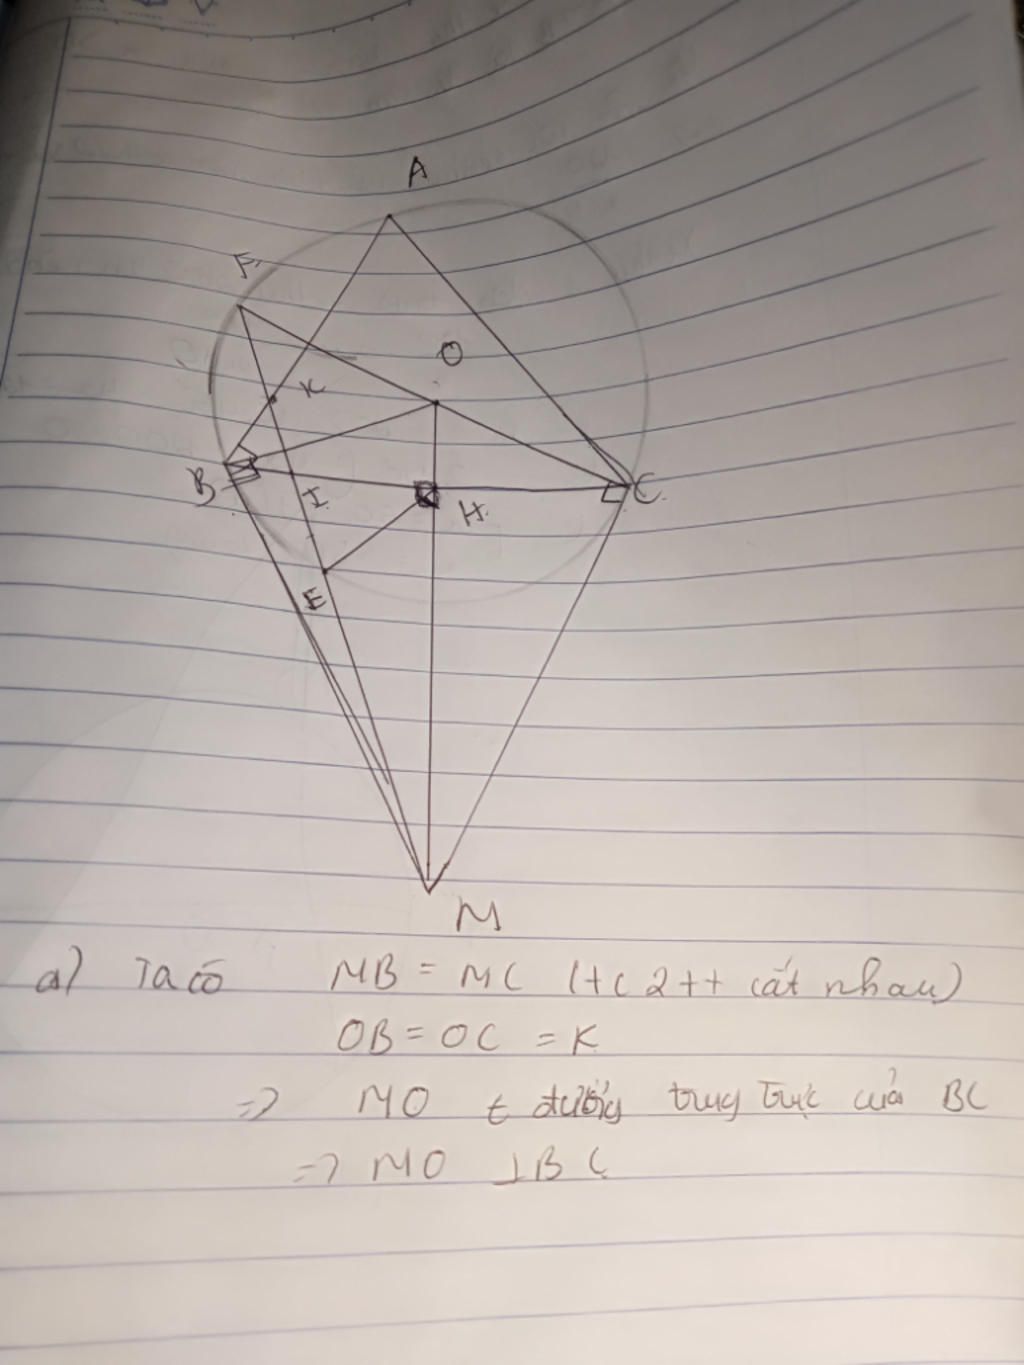 A
F
O
K
B
C
I
H
E
M
a) Ta có MB = MC (t/c 2 tt cắt nhau)
OB = OC = R
=> MO t đường trung trực của BC
=> MO ⊥ BC